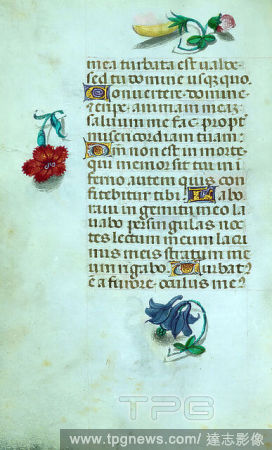 mea turbata est valde
sed tu domine usq;quo.
Convertere domine
eripe animam mea3
salvum me fac propt
misericordiam tuam:
Qm̄ non est in morte
qui memor sit tui in
ferno autem quis con
fitebitur tibi Labo
ravi in gemitu meo la
vabo per singulas noc
tes lectum meum lacri
mis meis stratum me
um rigabo Turbat9
e a furore oculus me9
TPG
www.tpgnews.com/達志影像